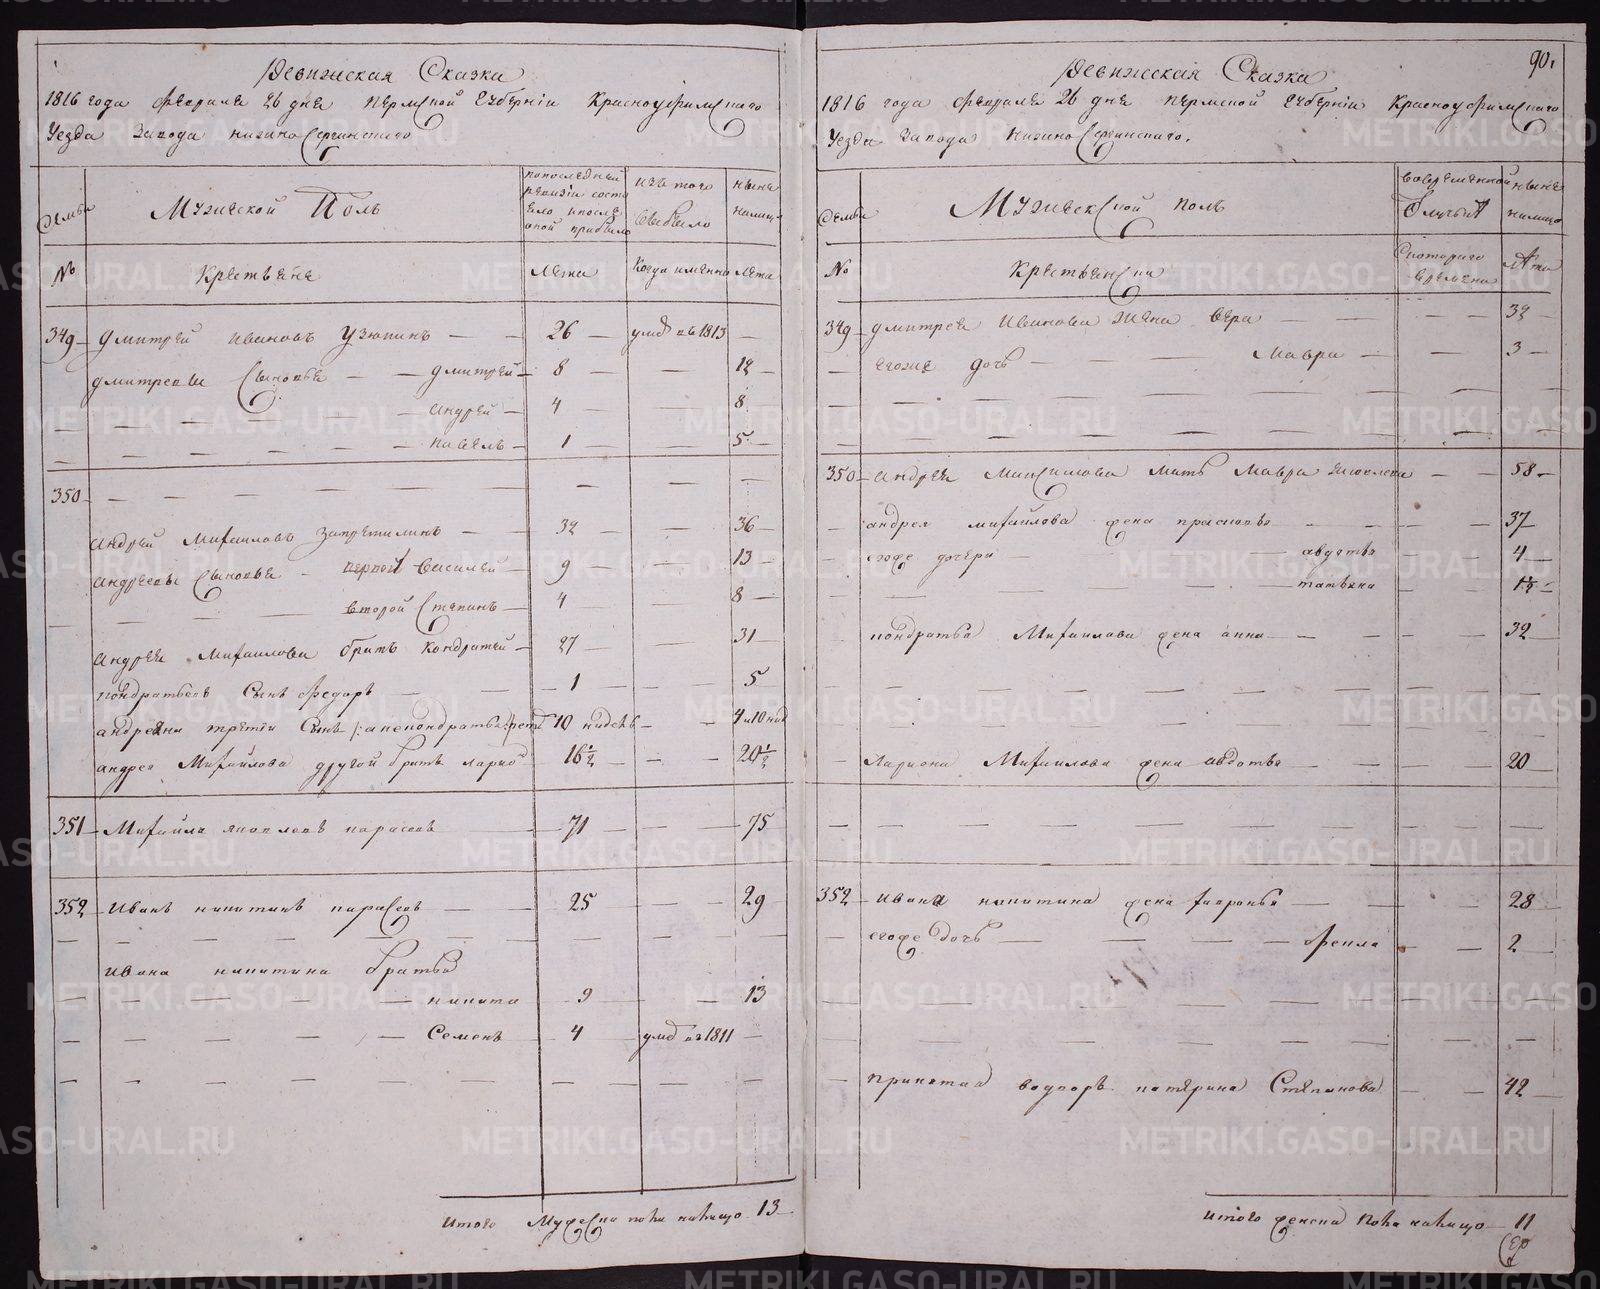 Ревижская Сказка
1816 года февраля 26 дня пермской губернiи Красноуфимскаго
Уезда завода нижно Сергинскаго
семьи
Мужеской Поль
попоследней ревизiи состояло ипосле оной прибыло
изъ того выбыло
ныне налицо
№
Крестьяне
Лета
Когда имянно
лета
349 Дмитрей ивановъ Узюкинъ 26 умѣ въ 1813
дмитревы Сыновья дмитрей 8 12
андрей 4 8
павелъ 1 5
350
андрей михаиловъ Запретилинъ 32 36
андреевы Сыновья первой василей 9 13
второй Степанъ 4 8
андрея михаилова братъ кондратей 27 31
кондратьевъ Сынъ Федоръ 1 5
андреяна третiи Сынъ /: анекондратьевъ 10 нидель 4 и 10 нид
андрея Михайлова другой братъ ларион 16½ 20½
351 Михайла яковлевъ карасевъ 71 75
352 Иванъ никитинъ карасевъ 25 29
ивана никитина братья
никита 9 13
Семенъ 4 умѣ въ 1811
Итого Мужеска пола налицо 13
90.
Ревижская Сказка
1816 года февраля 26 дня пермской губернiи Красноуфимскаго
Уезда завода нижно Сергинскаго.
семьи
Мужескной поль
вовременной отлучки
ныне налицо
№
Крестьянска
Скотораго времяни
лета
349 дмитрея Иванова жена вера 32
егоже дочь мавра 3
350 андрея михаилова мать мавра яковлева 58
андрея михаилова жена прасковья 37
егоже дочери авдотья 4
татьяна 1½
кондратья Михаилова жена анна 32
Лариона Михаилова жена авдотья 20
352 ивана никитина жена хавронья 28
егоже дочь фекла 2
принятая водворъ катерина Степанова 42
итого женска пола налицо 11